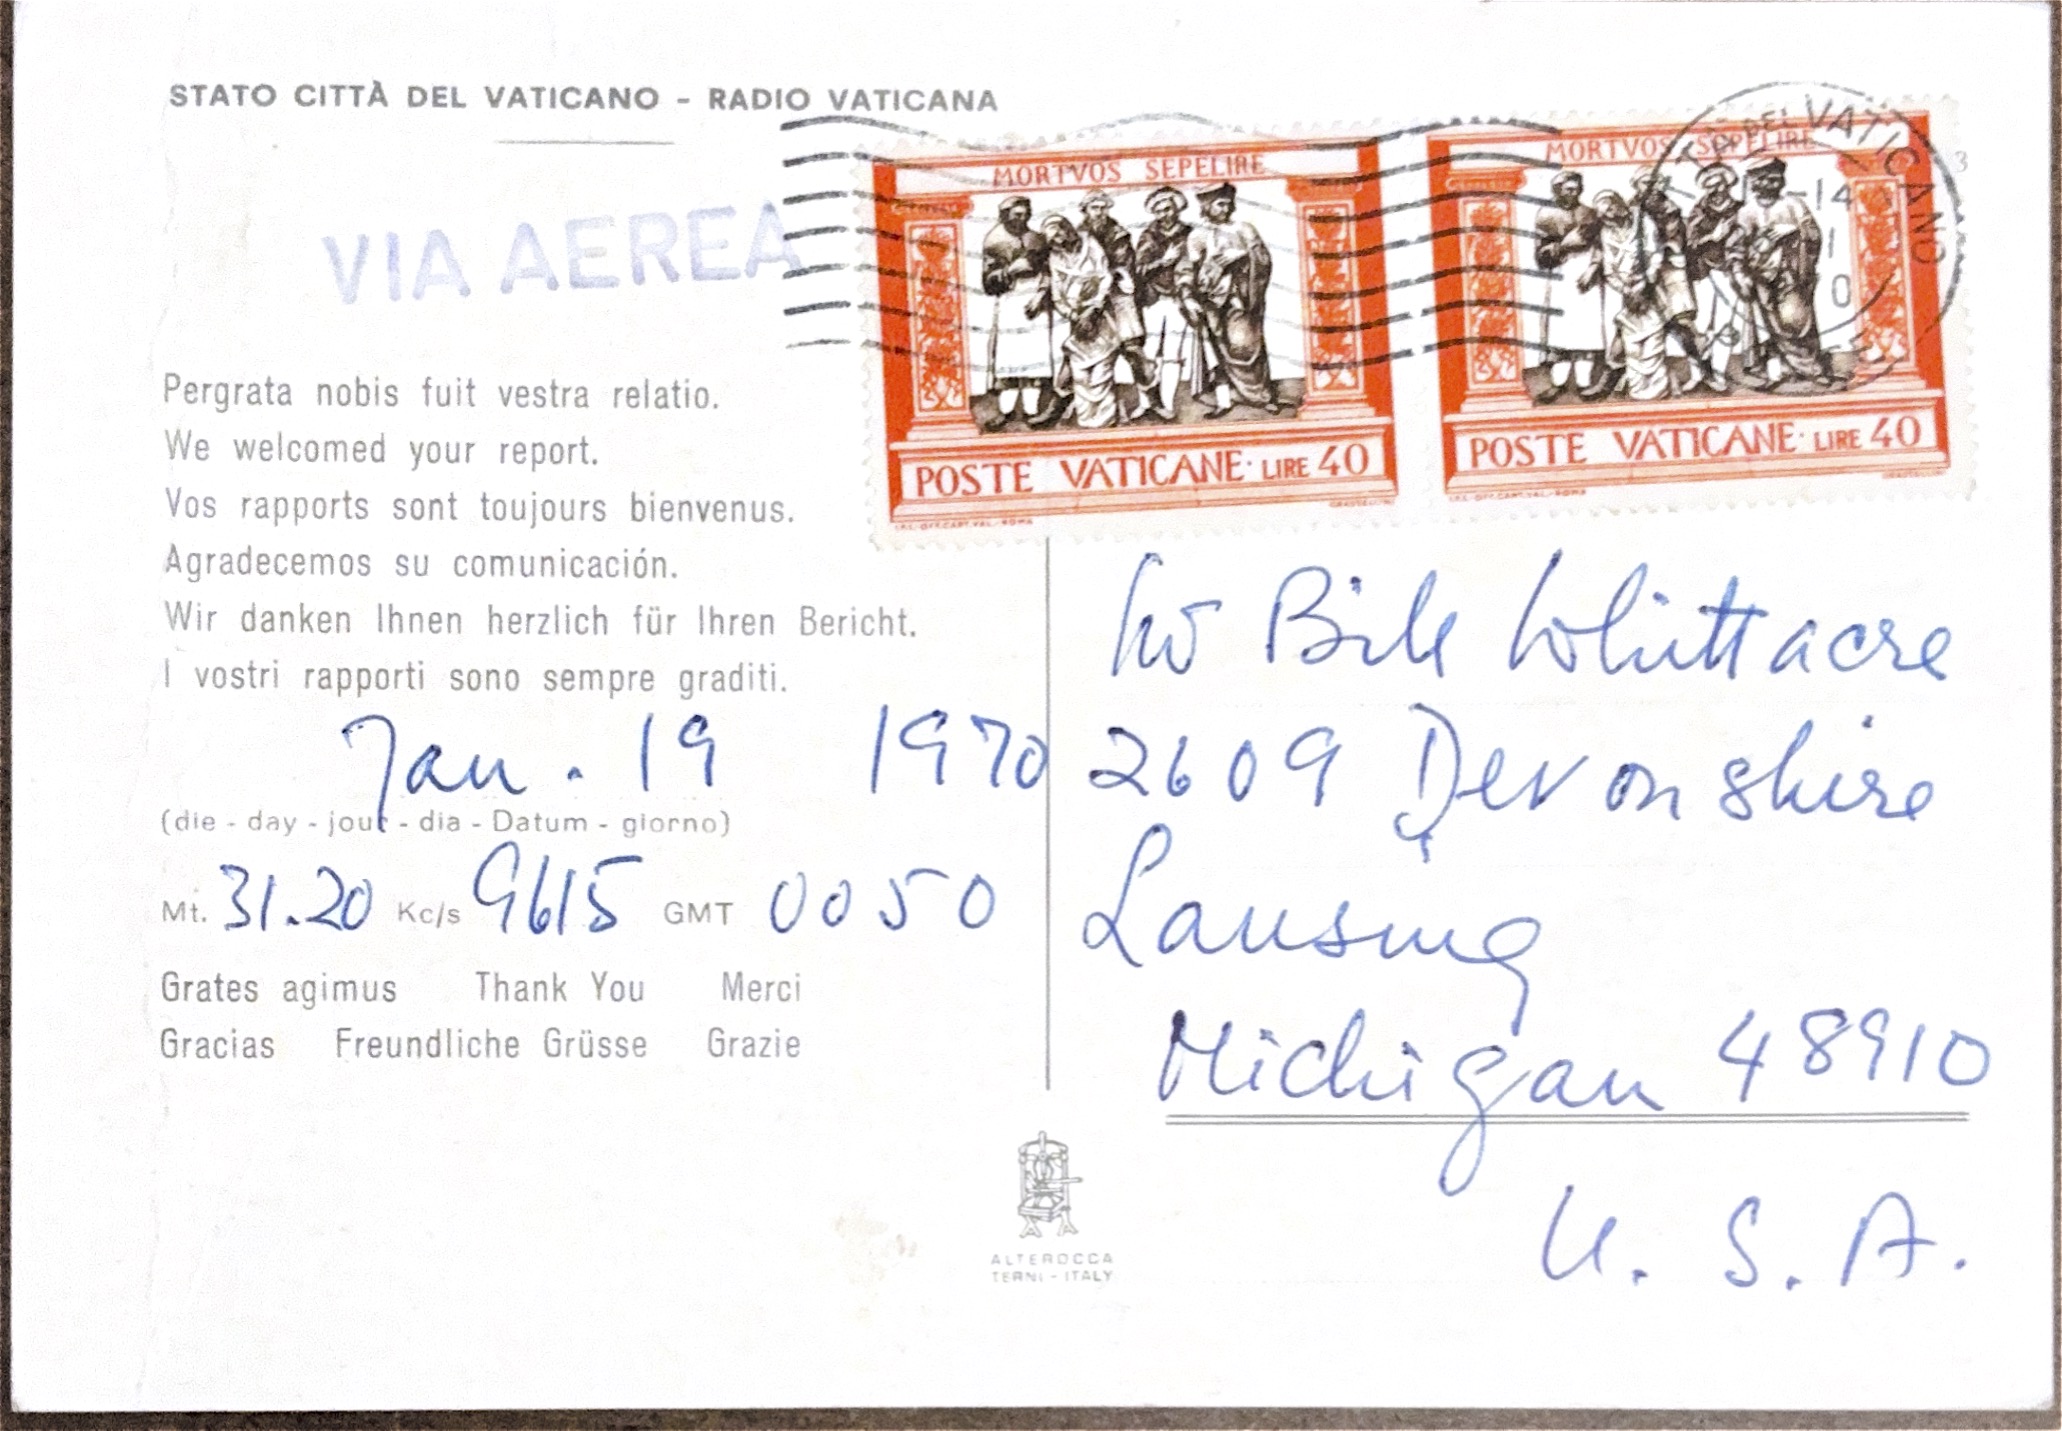 STATO CITTÀ DEL VATICANO - RADIO VATICANA
VIA AEREA
MORTVOS SEPELIRE
POSTE VATICANE · LIRE 40
MORTVOS SEPELIRE
POSTE VATICANE · LIRE 40
DEL VATICANO
-14
Pergrata nobis fuit vestra relatio.
We welcomed your report.
Vos rapports sont toujours bienvenus.
Agradecemos su comunicación.
Wir danken Ihnen herzlich für Ihren Bericht.
I vostri rapporti sono sempre graditi.
Jan. 19 1970
(die - day - jour - dia - Datum - giorno)
Mt. 31.20 Kc/s 9615 GMT 0050
Grates agimus Thank You Merci
Gracias Freundliche Grüsse Grazie
Bill Whittacre
2609 Devonshire
Lansing
Michigan 48910
U. S. A.
ALTEROCCA
TERNI - ITALY